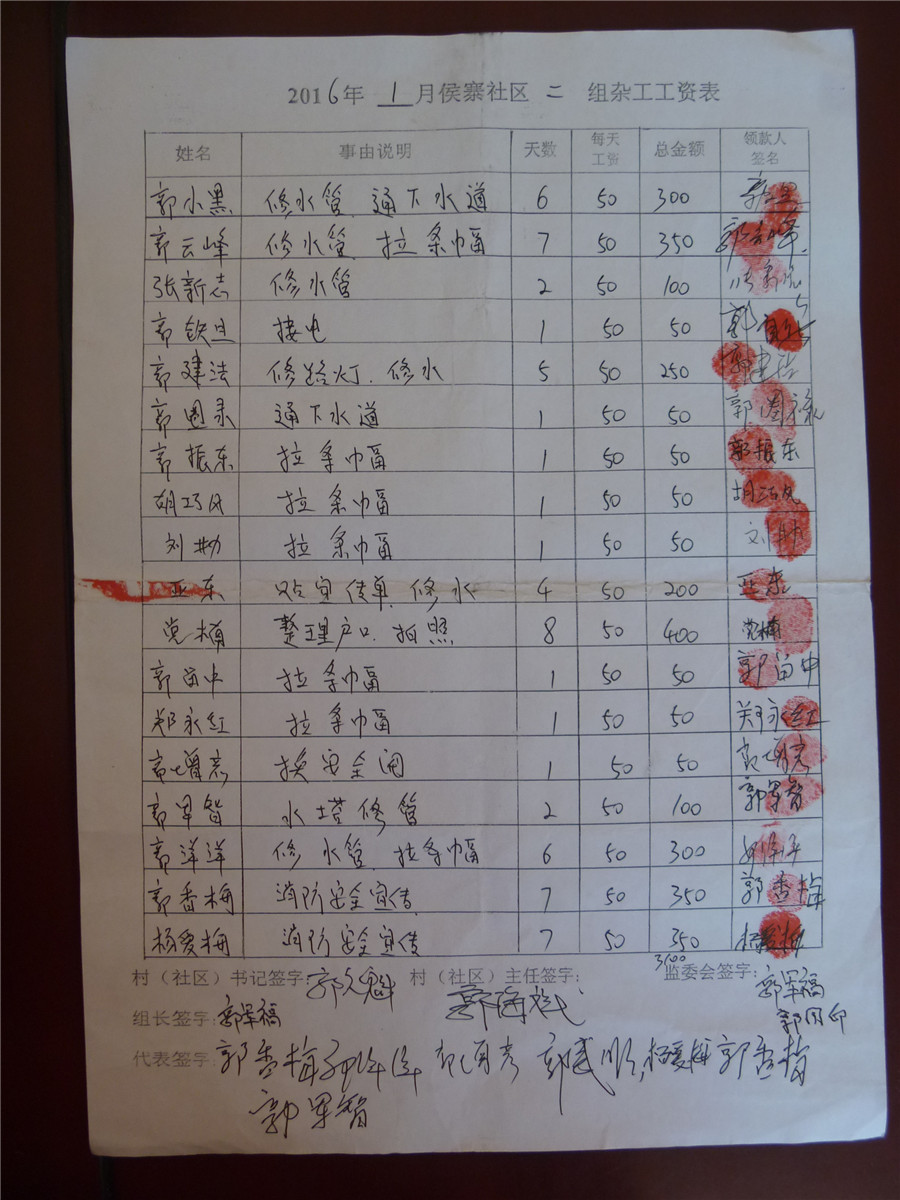 2016年 1月侯寨社区 二 组杂工工资表
姓名 事由说明 天数 每天工资 总金额 领款人签名
郭小黑 修水管.通下水道 6 50 300
郭云峰 修水管.拉条幅 7 50 350
张新志 修水管 2 50 100
郭铁旦 接电 1 50 50
郭建法 修路灯.修水 5 50 250 郭建法
郭圈录 通下水道 1 50 50 郭圈禄
郭振东 拉条幅 1 50 50 郭振东
胡巧风 拉条幅 1 50 50 胡巧风
刘勎 拉条幅 1 50 50
亚东 贴宣传单.修水 4 50 200 亚东
党楠 整理户口.拍照 8 50 400 党楠
郭留中 拉条幅 1 50 50 郭留中
郑永红 拉条幅 1 50 50 郑永红
郭增亮 换安全闸 1 50 50
郭军智 水塔修管 2 50 100 郭军智
郭洋洋 修水管.拉条幅 6 50 300
郭香梅 消防安全宣传 7 50 350 郭香梅
杨爱梅 消防安全宣传 7 50 350 杨爱梅
3100
村（社区）书记签字: 村（社区）主任签字: 监委会签字: 郭军福
组长签字: 郭军福
代表签字: 郭香梅 杨爱梅 郭香梅
郭军智